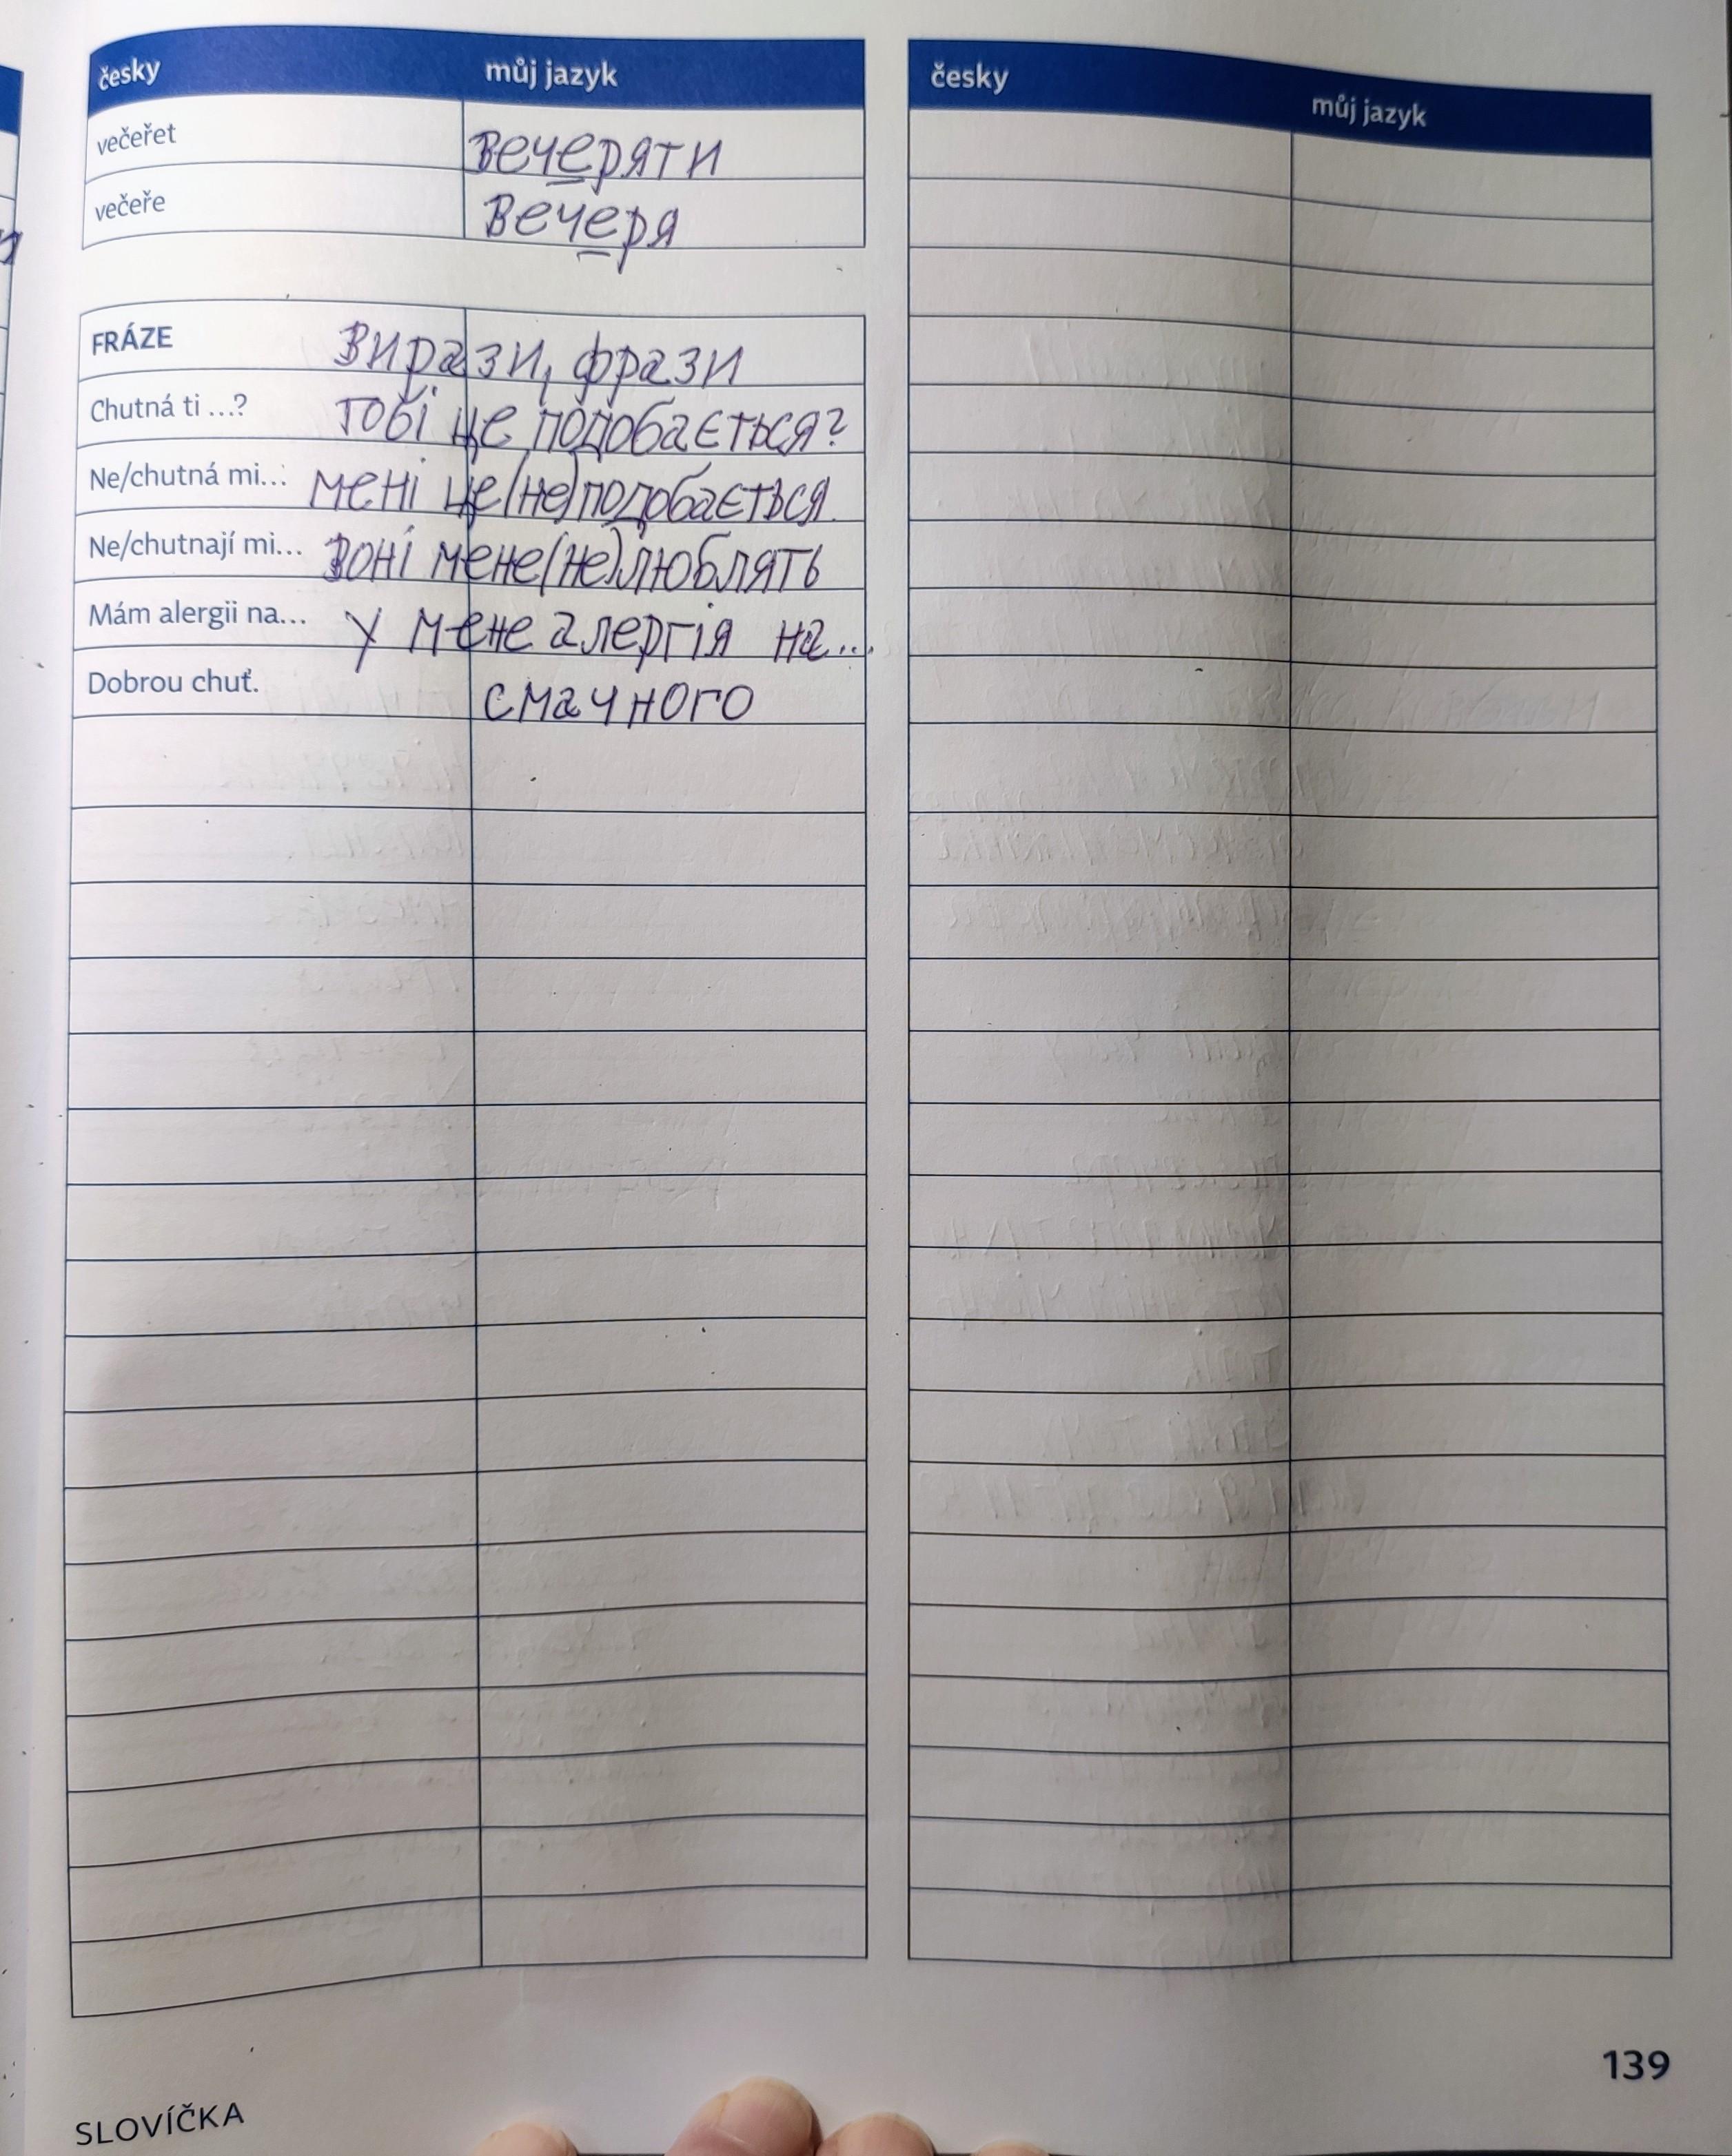 česky můj jazyk
večeřet вечеряти
večeře вечеря
FRÁZE вирази, фрази
Chutná ti ...? тобі це подобається?
Ne/chutná mi... мені це (не) подобається.
Ne/chutnají mi... воні мене (не) люблять
Mám alergii na... у мене алергія на...
Dobrou chuť. смачного
česky můj jazyk
139
SLOVÍČKA